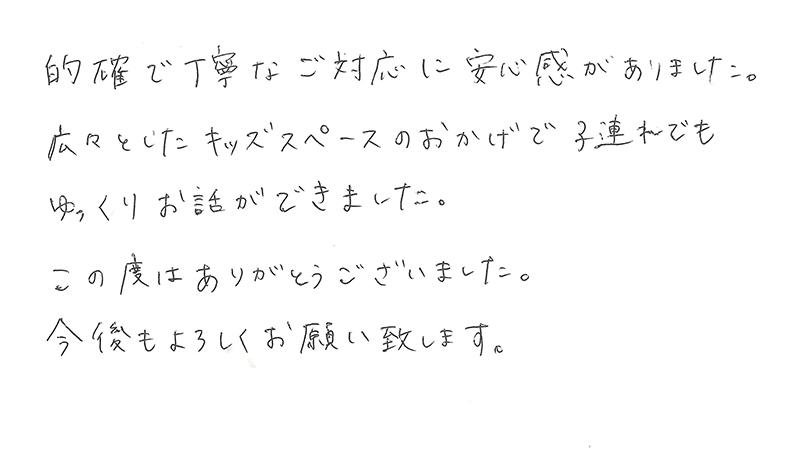 的確で丁寧なご対応に安心感がありました。
広々としたキッズスペースのおかげで子連れでも
ゆっくりお話ができました。
この度はありがとうございました。
今後もよろしくお願い致します。